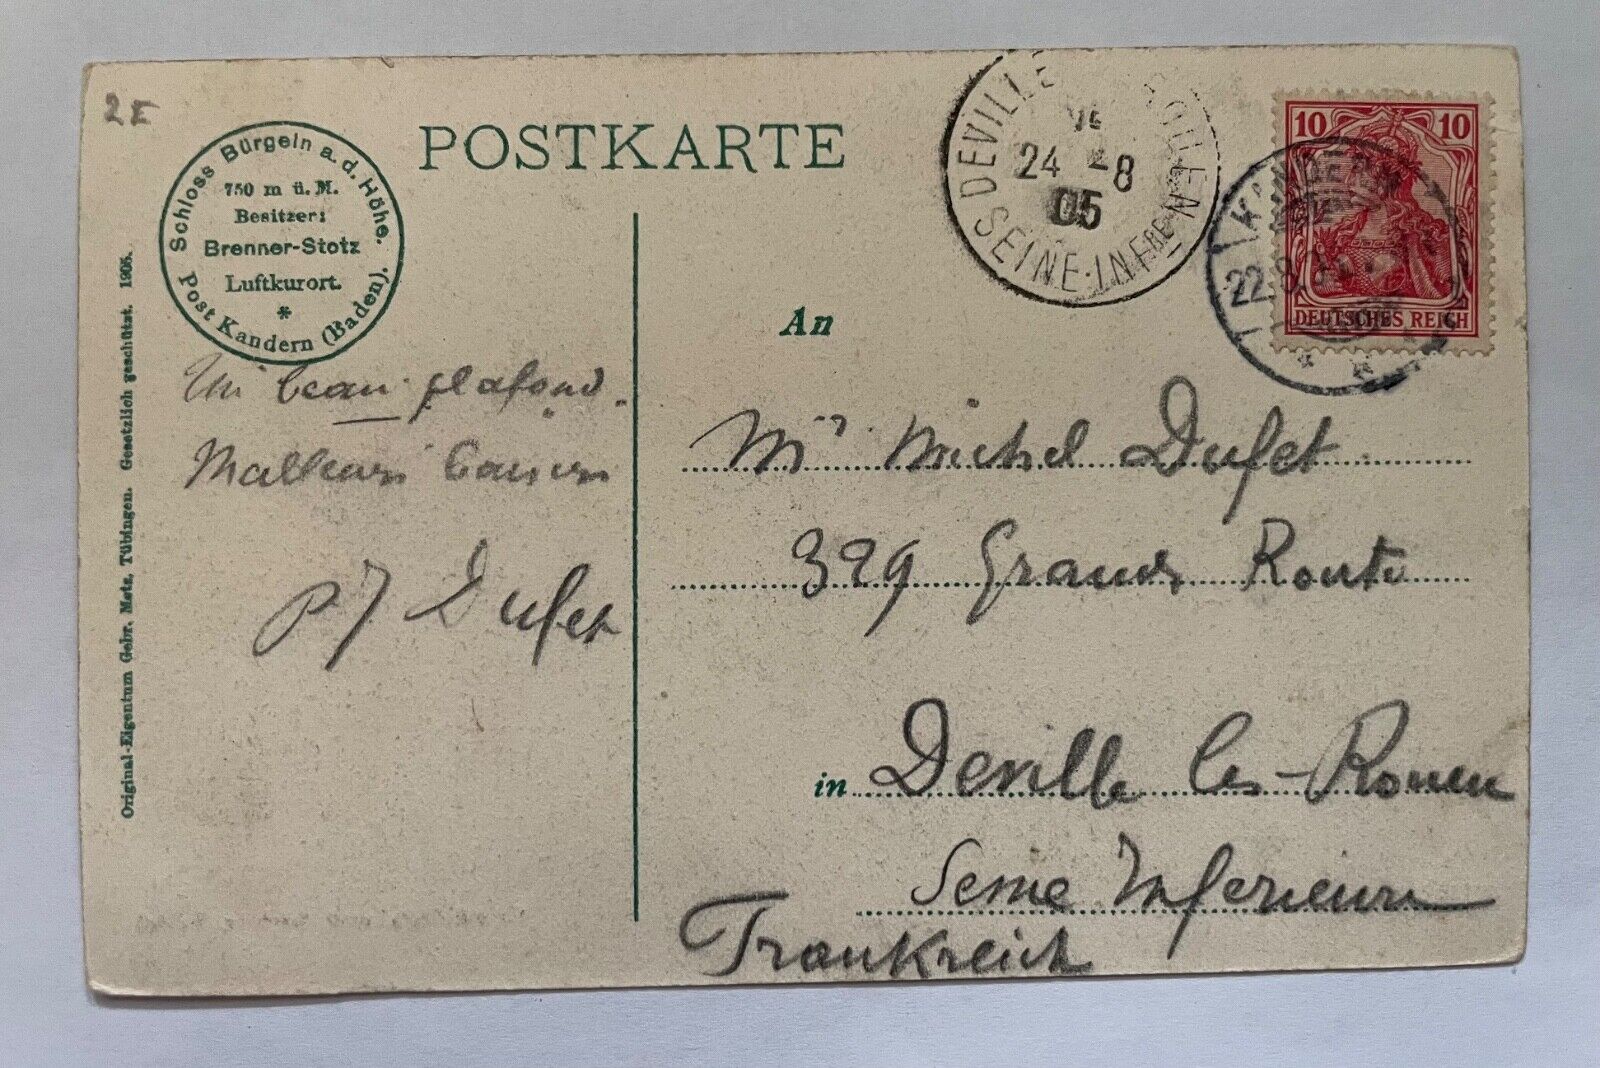 2E
Schloss Bürgeln a. d. Höhe.
750 m ü. M.
Besitzer:
Brenner-Stotz
Luftkurort.
*
Post Kandern (Baden).
POSTKARTE
DEVILLE ROUEN
24 8
05
SEINE-INFRE
10 10
DEUTSCHES REICH
KANDERN
22.8
* *
Original-Eigentum Gebr. Metz, Tübingen. Gesetzlich geschützt. 1905.
Un beau plafond.
Meilleurs baisers
PJ Dufet
An
Mr Michel Dufet
329 Grande Route
in Deville les-Rouen
Seine Inferieure
Frankreich